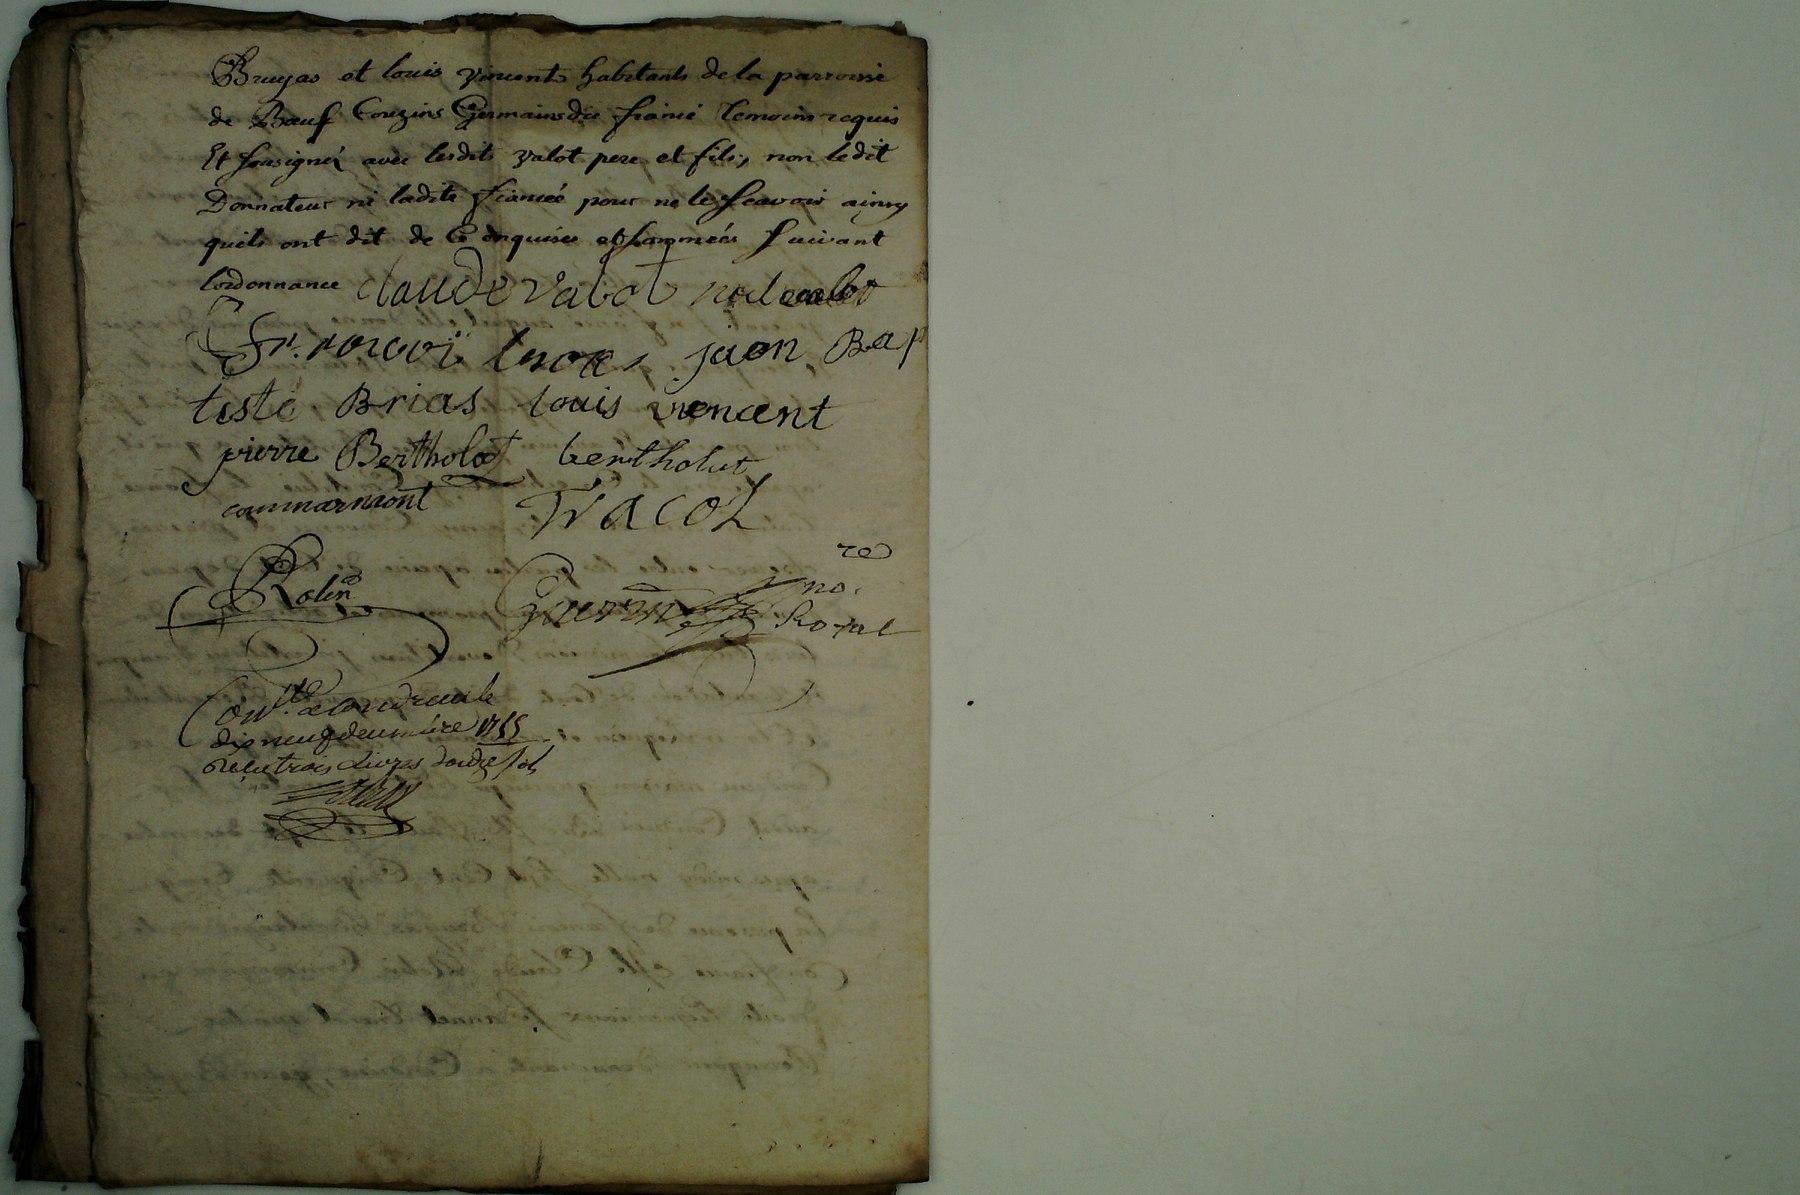 Bruyas et louis vincent habitants de la parroisse
de Bœuf Couzins Germains du fiancé temoins requis
Et sousignéz avec lesdits valot pere et fils, non ledit
Donnateur ni ladite fiancée pour ne le scavoir ainsy
quils ont dit de ce enquises et sommées suivant
lordonnance claude valot noel valot
Fr. jean Bap
tiste Brias louis vencent
pierre Bertholot bertholut
commarmont Tracol
Robin Guerin no.re
Royal
Con.lé a Condrieu le
dix neuf decembre 1755
Reçu trois Livres douze sols